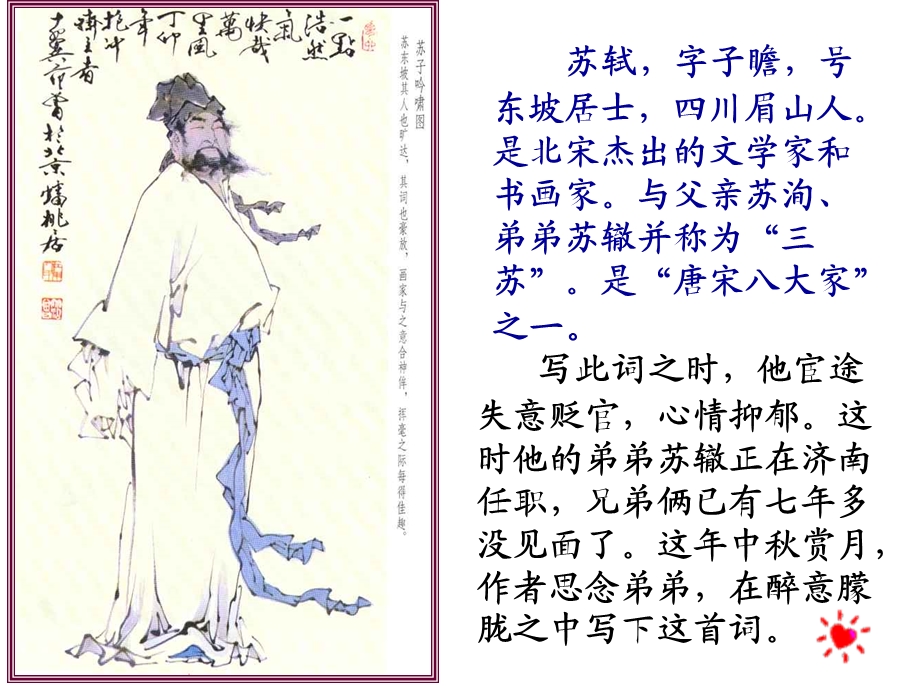 一點
浩然
氣
快哉
萬
里風
丁卯
年
抱冲
齋主者
十翼范曾於北京蟠桃居
苏子吟啸图
苏东坡其人也旷达，其词也豪放，画家与之意合神侔，挥毫之际每得佳趣。
苏轼，字子瞻，号
东坡居士，四川眉山人。
是北宋杰出的文学家和
书画家。与父亲苏洵、
弟弟苏辙并称为“三
苏”。是“唐宋八大家”
之一。
写此词之时，他宦途
失意贬官，心情抑郁。这
时他的弟弟苏辙正在济南
任职，兄弟俩已有七年多
没见面了。这年中秋赏月，
作者思念弟弟，在醉意朦
胧之中写下这首词。